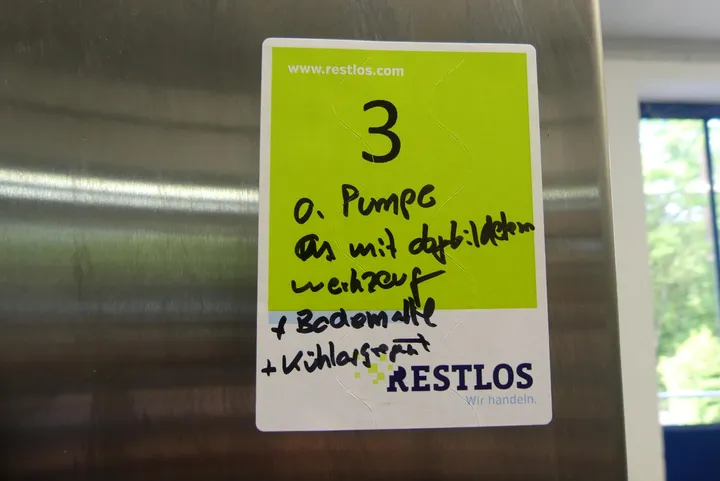 www.restlos.com
3
o. Pumpe
mit
werkzeug
+ Bodematte
+ Kühlaggregat
RESTLOS
Wir handeln.